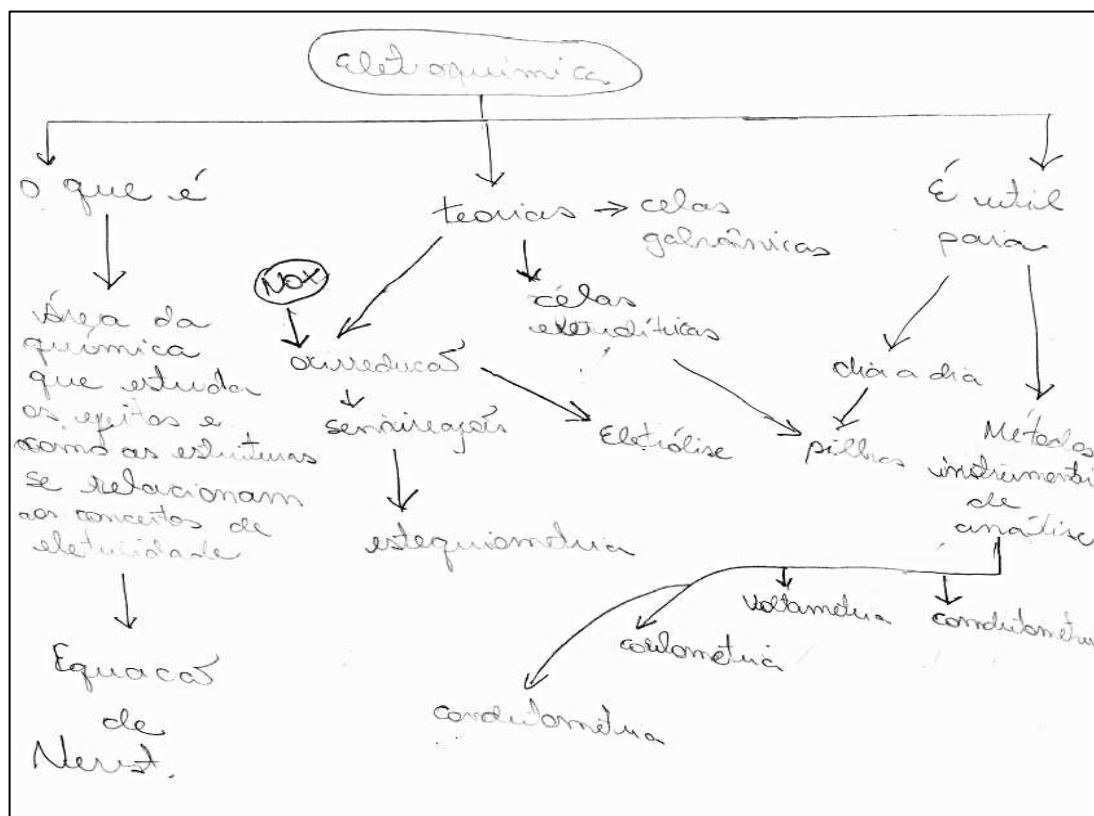 eletroquímica
O que é
Área da
química
que estuda
os efeitos e
como as estruturas
se relacionam
aos conceitos de
eletricidade
Equacaõ
de
Nerst.
teorias → celas
galvânicas
Nox
oxirreducaõ
semireações
estequiometria
célas
eletrolíticas
Eletrólise
É util
para
dia a dia
pilhas
Métodos
instrumenti
de
análise
condutometria
coulometria
voltametria
condutometria